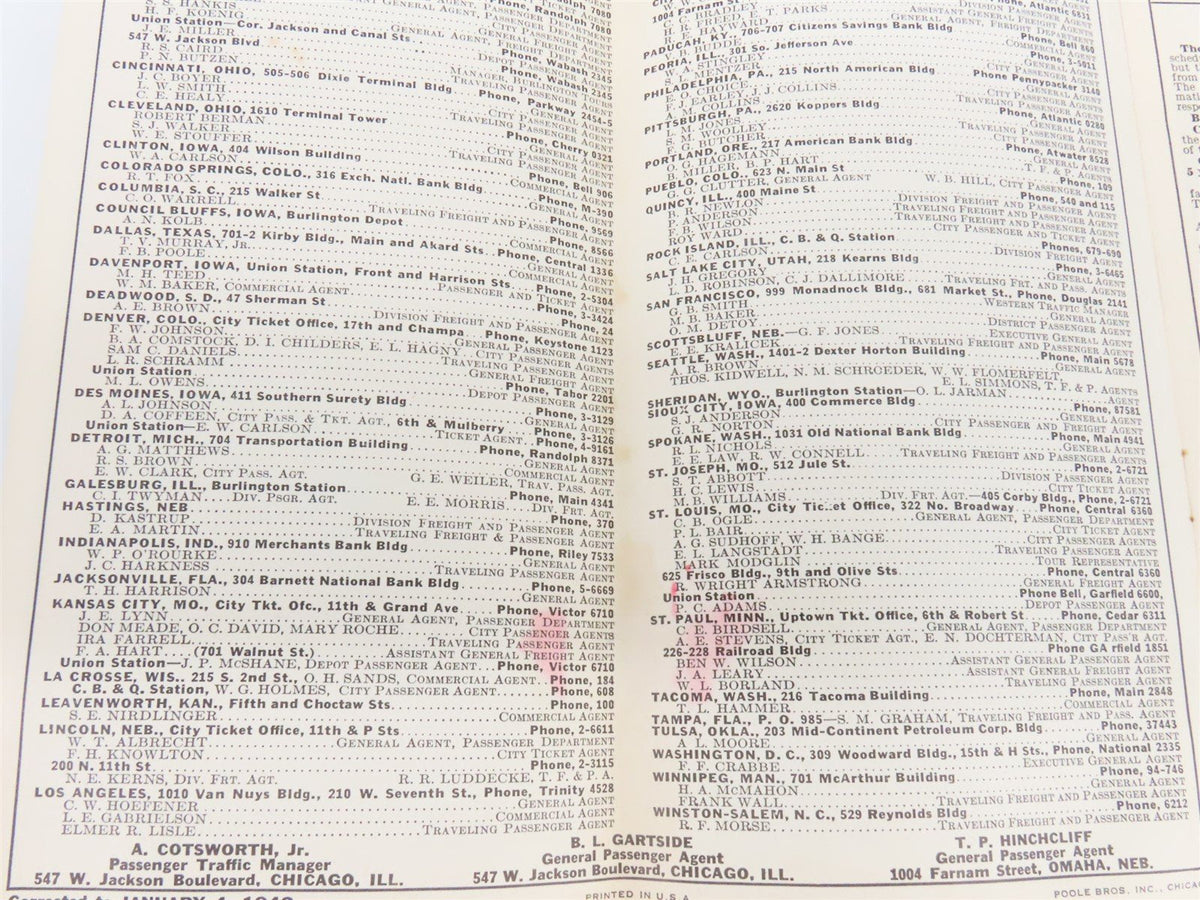 S. S. HANKIS
H. F. KOENIG
Union Station—Cor. Jackson and Canal Sts.
J. E. MILLER DEPOT PASSENGER AGENT
547 W. Jackson Blvd. Phone, Wabash 2345
R. S. CAIRD MANAGER, BURLINGTON TOURS
P. N. BUTZEN
CINCINNATI, OHIO, 505-506 Dixie Terminal Bldg. Phone, Parkway 2454-5
J. C. BOYER GENERAL AGENT
L. W. SMITH
C. E. HEALY TRAVELING PASSENGER AGENT
CLEVELAND, OHIO, 1610 Terminal Tower Phone, Cherry 0321
ROBERT BERMAN GENERAL AGENT
S. J. WALKER CITY PASSENGER AGENT
W. E. STOUFFER TRAVELING PASSENGER AGENT
CLINTON, IOWA, 404 Wilson Building Phone, Bell 906
W. A. CARLSON COMMERCIAL AGENT
COLORADO SPRINGS, COLO., 316 Exch. Natl. Bank Bldg. Phone, M-390
R. T. FOX GENERAL AGENT
COLUMBIA, S. C., 215 Walker St. Phone, 9569
C. O. WARRELL TRAVELING FREIGHT AND PASSENGER AGENT
COUNCIL BLUFFS, IOWA, Burlington Depot Phone, 8566
A. N. KOLB COMMERCIAL AGENT
DALLAS, TEXAS, 701-2 Kirby Bldg., Main and Akard Sts. Phone, Central 1336
T. V. MURRAY, JR. GENERAL AGENT
F. B. POOLE COMMERCIAL AGENT
DAVENPORT, IOWA, Union Station, Front and Harrison Sts. Phone, 2-5304
M. H. TEED PASSENGER AND TICKET AGENT
W. M. BAKER, COMMERCIAL AGENT Phone, 3-3424
DEADWOOD, S. D., 47 Sherman St. Phone, 24
A. E. BROWN DIVISION FREIGHT AND PASSENGER AGENT
DENVER, COLO., City Ticket Office, 17th and Champa Phone, Keystone 1123
F. W. JOHNSON GENERAL PASSENGER AGENT
B. A. COMSTOCK, D. I. CHILDERS, E. L. HAGNY CITY PASSENGER AGENTS
SAM C. DANIELS TRAVELING PASSENGER AGENT
L. R. SCHRAMM GENERAL FREIGHT AGENT
Union Station Phone, Tabor 2201
M. L. OWENS DEPOT PASSENGER AGENT
DES MOINES, IOWA, 411 Southern Surety Bldg. Phone, 3-3129
A. L. JOHNSON GENERAL AGENT
D. A. COFFEEN, CITY PASS. & TKT. AGT., 6th & Mulberry Phone, 3-3126
Union Station—E. W. CARLSON TICKET AGENT Phone, 4-9161
DETROIT, MICH., 704 Transportation Building Phone, Randolph 8371
A. G. MATTHEWS GENERAL AGENT
R. S. BROWN COMMERCIAL AGENT
E. W. CLARK, CITY PASS. AGT. G. E. WEILER, TRAV. PASS. AGT.
GALESBURG, ILL., Burlington Station Phone, Main 4341
C. I. TWYMAN DIV. PSGR. AGT. E. E. MORRIS DIV. FRT. AGT.
HASTINGS, NEB. Phone, 370
D. KASTRUP DIVISION FREIGHT AND PASSENGER AGENT
E. A. MARTIN TRAVELING FREIGHT & PASSENGER AGENT
INDIANAPOLIS, IND., 910 Merchants Bank Bldg. Phone, Riley 7533
W. P. O'ROURKE GENERAL AGENT
J. C. HARKNESS TRAVELING PASSENGER AGENT
JACKSONVILLE, FLA., 304 Barnett National Bank Bldg. Phone, 5-6669
T. H. HARRISON GENERAL AGENT
KANSAS CITY, MO., City Tkt. Ofc., 11th & Grand Ave. Phone, Victor 6710
J. E. LYNN GENERAL AGENT, PASSENGER DEPARTMENT
DON MEADE, O. C. DAVID, MARY ROCHE CITY PASSENGER AGENTS
IRA FARRELL TRAVELING PASSENGER AGENT
F. A. HART (701 Walnut St.) ASSISTANT GENERAL FREIGHT AGENT
Union Station—J. P. McSHANE, DEPOT PASSENGER AGENT Phone, Victor 6710
LA CROSSE, WIS., 215 S. 2nd St., O. H. SANDS, COMMERCIAL AGENT Phone, 184
C. B. & Q. Station, W. G. HOLMES, CITY PASSENGER AGENT Phone, 608
LEAVENWORTH, KAN., Fifth and Choctaw Sts. Phone, 100
S. E. NIRDLINGER COMMERCIAL AGENT
LINCOLN, NEB., City Ticket Office, 11th & P Sts. Phone, 2-6611
W. T. ALBRECHT GENERAL AGENT, PASSENGER DEPARTMENT
F. H. KNOWLTON CITY TICKET AGENT
200 N. 11th St. Phone, 2-3115
N. E. KERNS, DIV. FRT. AGT. R. R. LUDDECKE, T. F. & P. A.
LOS ANGELES, 1010 Van Nuys Bldg., 210 W. Seventh St., Phone, Trinity 4528
C. W. HOEFENER GENERAL AGENT
L. E. GABRIELSON COMMERCIAL AGENT
ELMER R. LISLE TRAVELING PASSENGER AGENT
1004 Farnam St. Phone, Atlantic 6831
C. BRADLEY
H. R. FREED, E. T. PARKS
H. E. HAYWARD
PADUCAH, KY., 706-707 Citizens Savings Bank Bldg. Phone, Bell 860
BUDDE COMMERCIAL AGENT
PEORIA, ILL., 301 So. Jefferson Ave. Phone, 3-5011
W. A. STINGLEY GENERAL AGENT
MENTZER CITY PASSENGER AGENT
PHILADELPHIA, PA., 215 North American Bldg. Phone Pennypacker 3140
CHOICE GENERAL AGENT
E. J. EARLEY, J. J. COLLINS CITY PASSENGER AGENTS
A. J. COLLINS TRAVELING PASSENGER AGENT
PITTSBURGH, PA., 2620 Koppers Bldg. Phone, Atlantic 0280
JONES GENERAL AGENT
S. M. WOOLLEY CITY PASSENGER AGENT
F. G. BUTCHER TRAVELING PASSENGER AGENT
PORTLAND, ORE., 217 American Bank Bldg. Phone, Atwater 8528
HAGEMANN GENERAL AGENT
B. MILLER, B. P. HART T. F. & P. AGENTS
PUEBLO, COLO., 623 N. Main St. Phone, 109
G. G. CLUTTER, GENERAL AGENT W. B. HILL, CITY PASSENGER AGENT
QUINCY, ILL., 400 Maine St. Phone, 540 and 115
B. R. NEWLON DIVISION FREIGHT AND PASSENGER AGENT
P. ANDERSON TRAVELING FREIGHT AND PASSENGER AGENT
F. B. WILSON TRAVELING FREIGHT AND PASSENGER AGENT
ROY WARD CITY PASSENGER AND TICKET AGENT
ROCK ISLAND, ILL., C. B. & Q. Station Phones, 679-690
C. E. CARLSON DIVISION FREIGHT AGENT
SALT LAKE CITY, UTAH, 218 Kearns Bldg. Phone, 3-6465
J. H. GREGORY GENERAL AGENT
L. D. ROBINSON, C. J. DALLIMORE TRAVELING FRT. AND PASS. AGENTS
SAN FRANCISCO, 999 Monadnock Bldg., 681 Market St., Phone, Douglas 2141
G. B. SMITH WESTERN TRAFFIC MANAGER
M. B. BAKER GENERAL AGENT
O. M. DETOY DISTRICT PASSENGER AGENT
SCOTTSBLUFF, NEB.—G. F. JONES EXECUTIVE GENERAL AGENT
E. E. KRALICEK TRAVELING FREIGHT AND PASSENGER AGENT
SEATTLE, WASH., 1401-2 Dexter Horton Building Phone, Main 5678
A. R. BROWN GENERAL AGENT
THOS. KIDWELL, N. M. SCHROEDER, W. W. FLOMERFELT,
E. L. SIMMONS, T. F. & P. AGENTS
SHERIDAN, WYO., Burlington Station—O. L. JARMAN AGENT
SIOUX CITY, IOWA, 400 Commerce Bldg. Phone, 87581
S. J. ANDERSON GENERAL AGENT
G. R. NORTON CITY PASSENGER AND FREIGHT AGENT
SPOKANE, WASH., 1031 Old National Bank Bldg. Phone, Main 4941
R. L. NICHOLS GENERAL AGENT
E. E. LAW, R. W. CONNELL TRAVELING FREIGHT AND PASSENGER AGENTS
ST. JOSEPH, MO., 512 Jule St. Phone, 2-6721
S. T. ABBOTT DIVISION PASSENGER AGENT
H. C. LEWIS CITY TICKET AGENT
M. B. WILLIAMS DIV. FRT. AGT.—405 Corby Bldg., Phone, 2-6721
ST. LOUIS, MO., City Tic et Office, 322 No. Broadway Phone, Central 6360
C. B. OGLE GENERAL AGENT, PASSENGER DEPARTMENT
P. L. BAIR CITY TICKET AGENT
A. G. SUDHOFF, W. H. BANGE CITY PASSENGER AGENTS
E. L. LANGSTADT TRAVELING PASSENGER AGENT
MARK MODGLIN TOUR REPRESENTATIVE
625 Frisco Bldg., 9th and Olive Sts. Phone, Central 6360
R. WRIGHT ARMSTRONG GENERAL FREIGHT AGENT
Union Station Phone Bell, Garfield 6600,
P. C. ADAMS DEPOT PASSENGER AGENT
ST. PAUL, MINN., Uptown Tkt. Office, 6th & Robert St. Phone, Cedar 6311
C. E. BIRDSELL GENERAL AGENT, PASSENGER DEPARTMENT
A. E. STEVENS, CITY TICKET AGT., E. N. DOCHTERMAN, CITY PASS'R AGT.
226-228 Railroad Bldg. Phone GA rfield 1851
BEN W. WILSON ASSISTANT GENERAL PASSENGER AGENT
J. A. LEARY ASSISTANT GENERAL FREIGHT AGENT
W. L. BORLAND TRAVELING PASSENGER AGENT
TACOMA, WASH., 216 Tacoma Building Phone, Main 2848
T. L. HAMMER COMMERCIAL AGENT
TAMPA, FLA., P. O. 985—S. M. GRAHAM, TRAVELING FREIGHT AND PASS. AGENT
TULSA, OKLA., 203 Mid-Continent Petroleum Corp. Bldg. Phone, 37443
A. L. MOORE GENERAL AGENT
WASHINGTON, D. C., 309 Woodward Bldg., 15th & H Sts., Phone, National 2335
F. F. CRABBE EXECUTIVE GENERAL AGENT
WINNIPEG, MAN., 701 McArthur Building Phone, 94-746
H. A. McMAHON GENERAL AGENT
FRANK WALL TRAVELING FREIGHT AND PASSENGER AGENT
WINSTON-SALEM, N. C., 529 Reynolds Bldg. Phone, 6212
R. F. MORSE TRAVELING FREIGHT AND PASSENGER AGENT
A. COTSWORTH, Jr.
Passenger Traffic Manager
547 W. Jackson Boulevard, CHICAGO, ILL.
B. L. GARTSIDE
General Passenger Agent
547 W. Jackson Boulevard, CHICAGO, ILL.
T. P. HINCHCLIFF
General Passenger Agent
1004 Farnam Street, OMAHA, NEB.
PRINTED IN U.S.A.
POOLE BROS. INC., CHICA